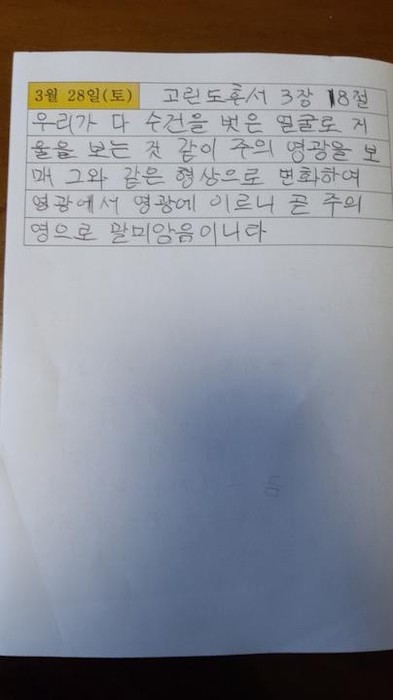 3월 28일(토) 고린도혼서 3장 18절
우리가 다 수건을 벗은 얼굴로 거
울을 보는 것 같이 주의 영광을 보
매 그와 같은 형상으로 변화하여
영광에서 영광에 이르니 곧 주의
영으로 말미암음이니라